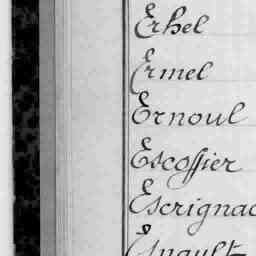 Erhel
Ermel
Ernoul
Escoffier
Escrignac